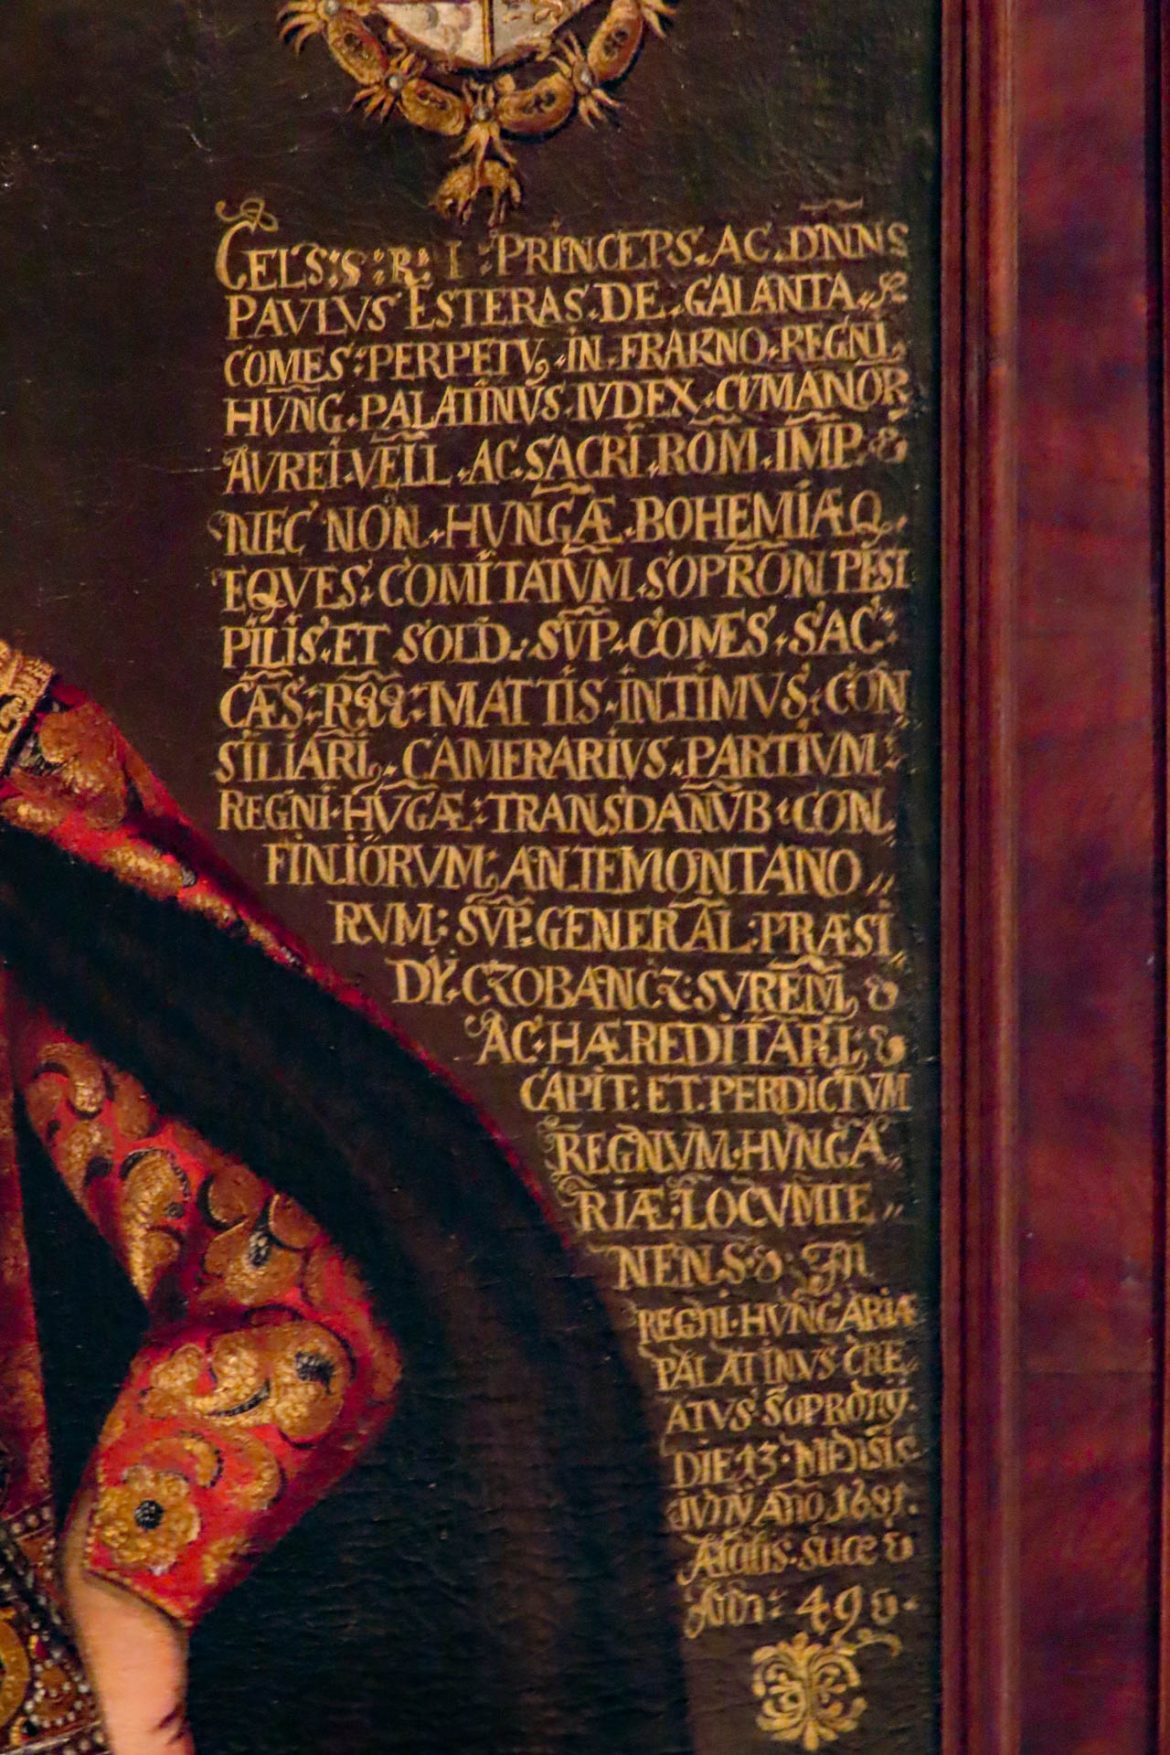 CELS:S:R:I:PRINCEPS.AC.DN̄NS
PAVLVS ESTERAS.DE.GALANTA.&
COMES.PERPETV9.IN.FRAKNO.REGNI
HVNG.PALATINVS.IVDEX.CVMANOR
AVREI.VELL.AC.SACRI.ROM.IMP.&
NEC NON.HVNGÆ.BOHEMIÆQ.
EQVES.COMITATVM.SOPRON PESI
PILIS.ET SOLD.SVP.COMES.SAC:
CÆS:RQQ:MATTIS.INTIMVS.CON
SILIARI9.CAMERARIVS.PARTIVM:
REGNI.HVGÆ:TRANSDANVB.CON
FINIORVM,ANTEMONTANO
RVM:SVP.GENERAL:PRÆSI
DY.CZOBANCZ:SVREM,&
AC.HÆREDITARI,&
CAPIT:ET.PERDICTVM
REGNVM.HVNGA
RIÆ.LOCVMTE
NENS.&
REGNI.HVNGARIÆ
PALATINVS CRE
ATVS SOPRONY.
DIE 13 MENSIS
IVNY AŃO 1681.
Ætatis.suæ &
49 &.